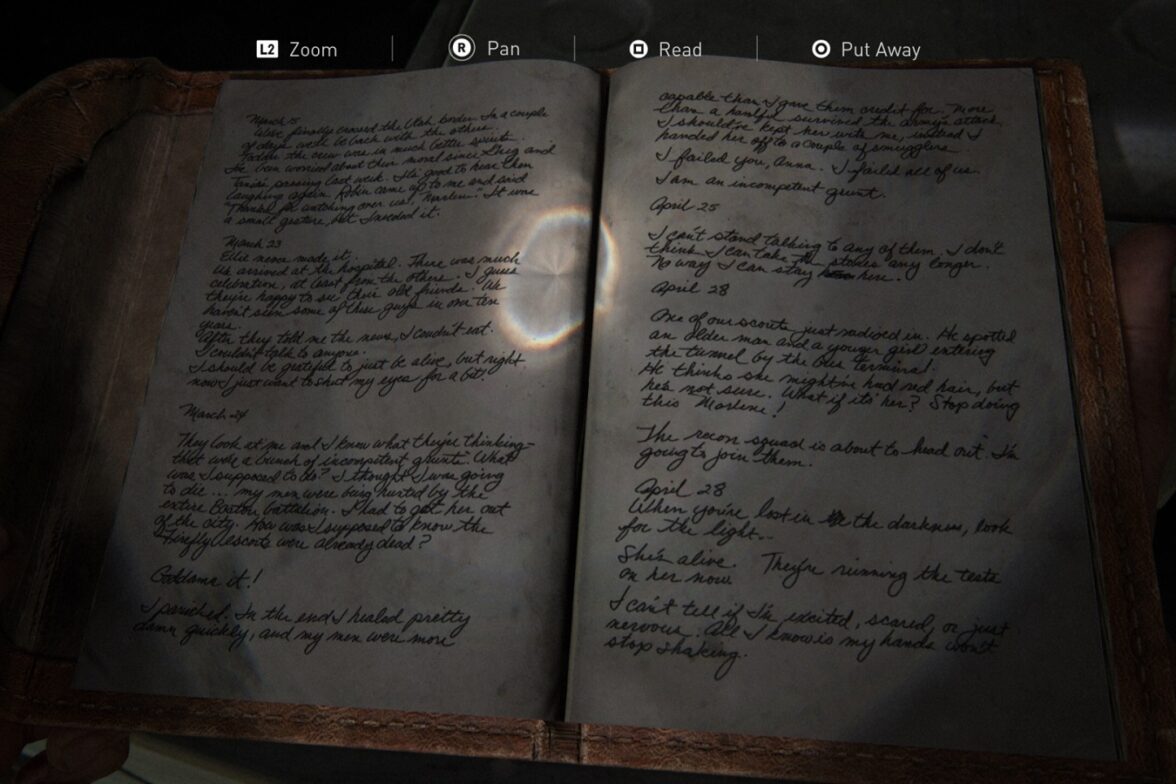 L2 Zoom
R Pan
Read
Put Away
March 15
We've finally crossed the Utah border. In a couple
of days we'll be back with the others.
Today the crew was in much better spirits.
I've been worried about their moral since Greg and
passing last week. It's good to hear them
laughing again. Robin came up to me and said
"Thanks for watching over us, Marlene." It was
a small gesture, but I needed it.
March 23
Ellie never made it.
We arrived at the hospital. There was much
celebration, at least from the others. I guess
they're happy to see their old friends. We
haven't seen some of these guys in over ten
years.
After they told me the news, I couldn't eat.
I couldn't talk to anyone.
I should be grateful to just be alive, but right
now I just want to shut my eyes for a bit.
March 24
They look at me and I know what they're thinking-
that we're a bunch of incompetent grunts. What
was I supposed to do? I thought I was going
to die... my men were being hunted by the
entire Boston battalion. I had to get her out
of the city. How was I supposed to know the
Firefly escorts were already dead?
Goddamn it!
I panicked. In the end I healed pretty
damn quickly, and my men were more
capable than I gave them credit for. More
than a handful survived the army's attack.
I should've kept her with me, instead I
handed her off to a couple of smugglers.
I failed you, Anna. I failed all of us.
I am an incompetent grunt.
April 25
I can't stand talking to any of them. I don't
think I can take the stares any longer.
No way I can stay here.
April 28
One of our scouts just radioed in. He spotted
an older man and a younger girl entering
the tunnel by the bus terminal.
He thinks she might've had red hair, but
he's not sure. What if it's her? Stop doing
this Marlene!
The recon squad is about to head out. I'm
going to join them.
April 28
When you're lost in the darkness, look
for the light..
She's alive. They're running the tests
on her now.
I can't tell if I'm excited, scared, or just
nervous. All I know is my hands won't
stop shaking.